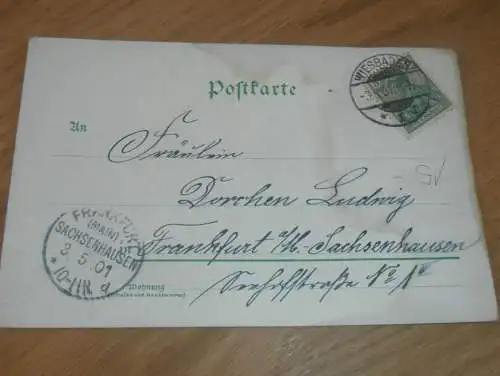 WIESBADEN
Postkarte
An
Fräulein
Dorchen Ludwig
Frankfurt a/M. Sachsenhausen
Seehofstraße No 1
Wohnung
FRANKFURT
(MAIN)
SACHSENHAUSEN
3.5.01
15